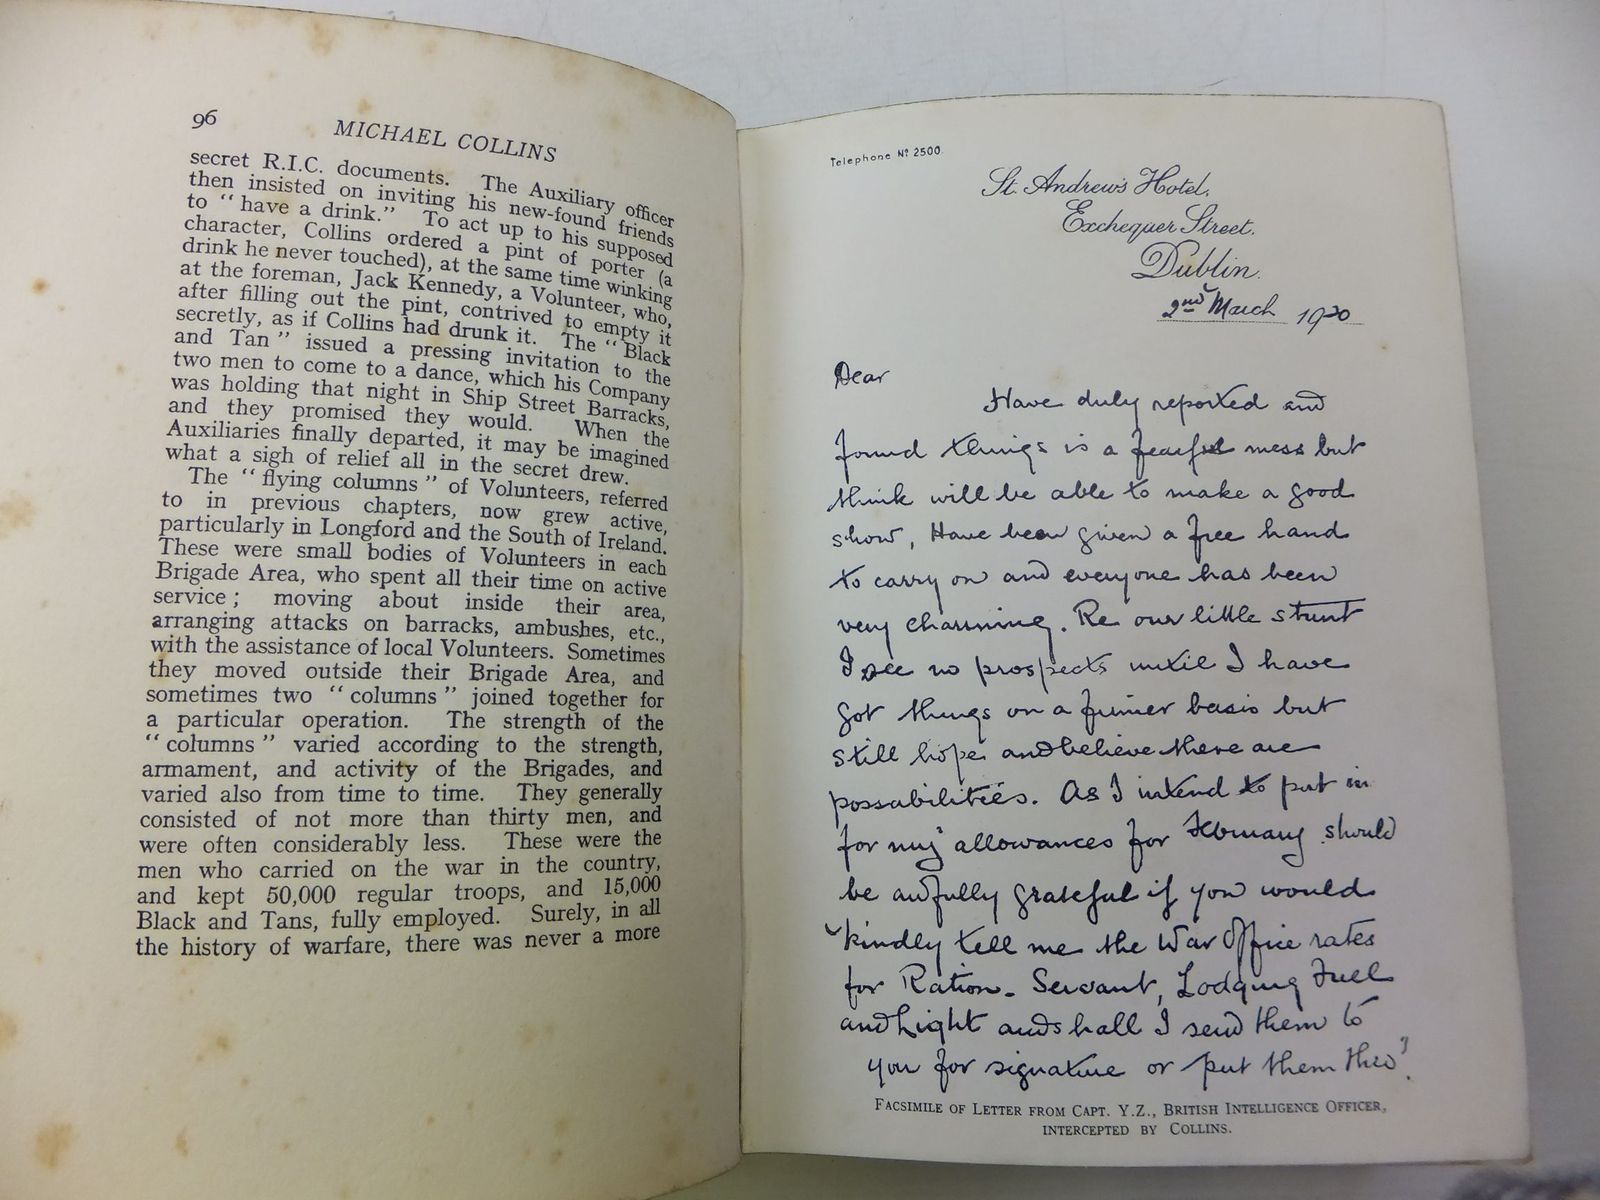 96
MICHAEL COLLINS
secret R.I.C. documents. The Auxiliary officer
then insisted on inviting his new-found friends
to "have a drink." To act up to his supposed
character, Collins ordered a pint of porter (a
drink he never touched), at the same time winking
at the foreman, Jack Kennedy, a Volunteer, who,
after filling out the pint, contrived to empty it
secretly, as if Collins had drunk it. The "Black
and Tan" issued a pressing invitation to the
two men to come to a dance, which his Company
was holding that night in Ship Street Barracks,
and they promised they would. When the
Auxiliaries finally departed, it may be imagined
what a sigh of relief all in the secret drew.
The "flying columns" of Volunteers, referred
to in previous chapters, now grew active,
particularly in Longford and the South of Ireland.
These were small bodies of Volunteers in each
Brigade Area, who spent all their time on active
service; moving about inside their area,
arranging attacks on barracks, ambushes, etc.,
with the assistance of local Volunteers. Sometimes
they moved outside their Brigade Area, and
sometimes two "columns" joined together for
a particular operation. The strength of the
"columns" varied according to the strength,
armament, and activity of the Brigades, and
varied also from time to time. They generally
consisted of not more than thirty men, and
were often considerably less. These were the
men who carried on the war in the country,
and kept 50,000 regular troops, and 15,000
Black and Tans, fully employed. Surely, in all
the history of warfare, there was never a more
Telephone Nº 2500.
St. Andrew's Hotel,
Exchequer Street,
Dublin.
2nd March 1920
Dear
Have duly reported and
found things is a fearful mess but
think will be able to make a good
show, Have been given a free hand
to carry on and everyone has been
very charming. Re our little stunt
I see no prospects until I have
got things on a firmer basis but
still hope and believe there are
possabilities. As I intend to put in
for my allowances for February should
be awfully grateful if you would
kindly tell me the War Office rates
for Ration. Servant, Lodging Fuel
and Light and shall I send them to
you for signature or put them thro'?
FACSIMILE OF LETTER FROM CAPT. Y.Z., BRITISH INTELLIGENCE OFFICER,
INTERCEPTED BY COLLINS.